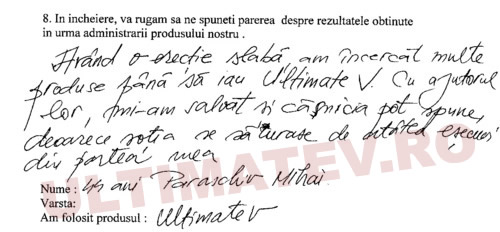 8. In incheiere, va rugam sa ne spuneti parerea despre rezultatele obtinute
in urma administrarii produsului nostru .
Având o erecție slabă, am încercat multe
produse până să iau Ultimate V. Cu ajutorul
lor, mi-am salvat și căsnicia pot spune,
deoarece soția se săturase de atâtea eșecuri
din partea mea
Nume : 44 ani Paraschiv Mihai
Varsta:
Am folosit produsul : Ultimate V
ULTIMATEV.RO